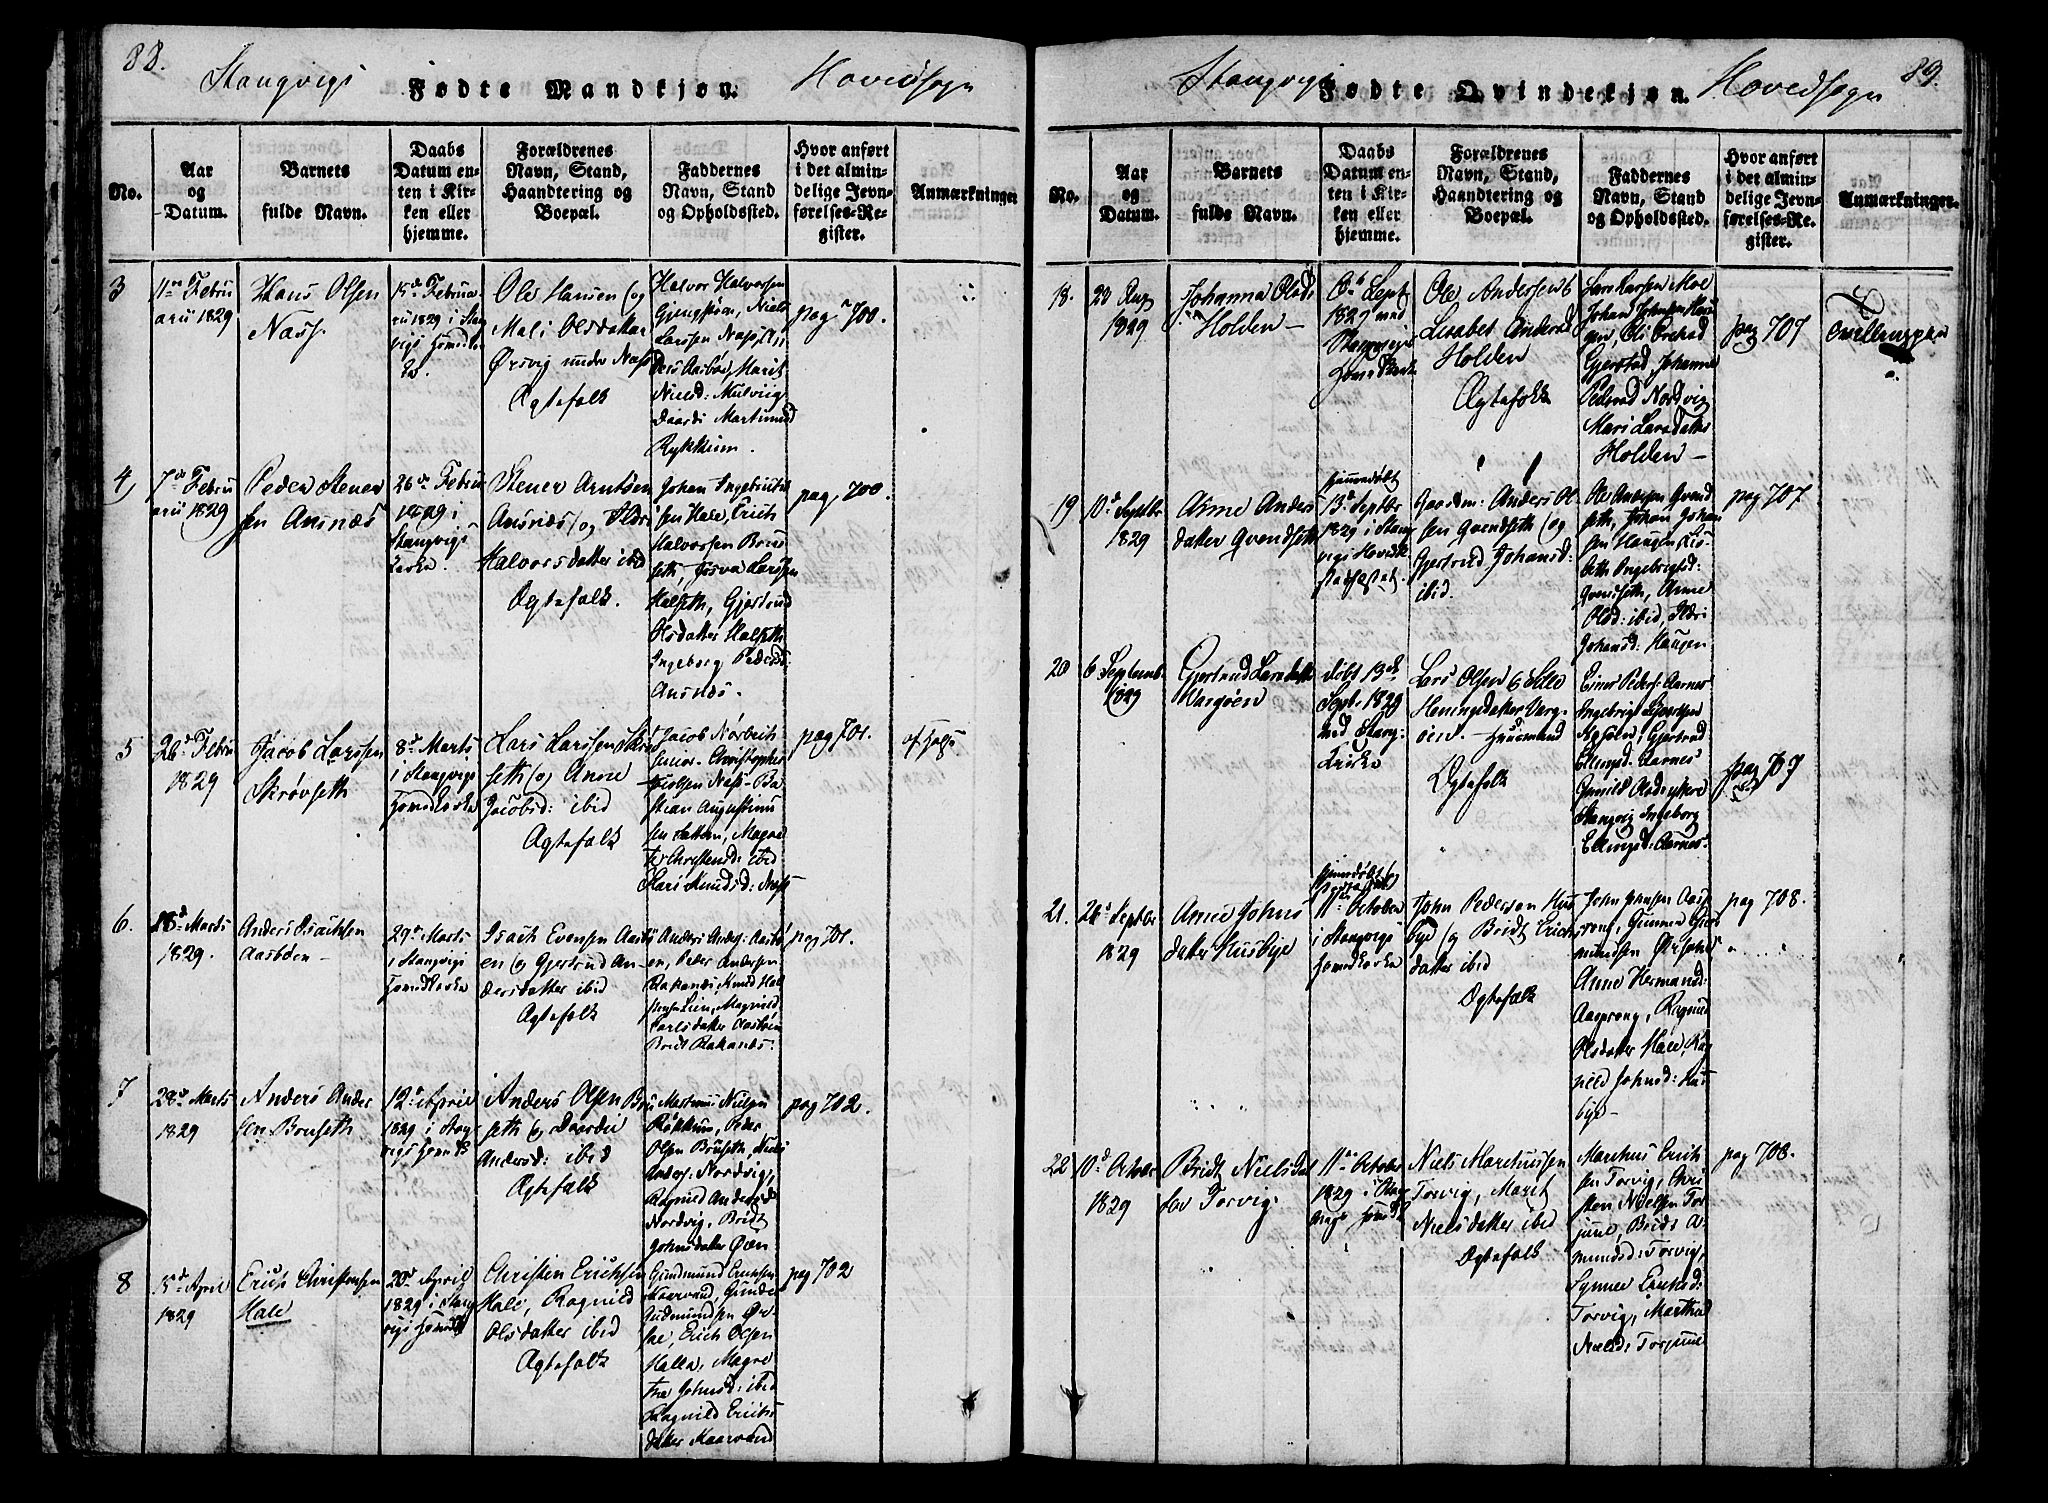 88.
Stangvigs Fødte Mandkjøn. Hovedsogn
No.
Aar
og
Datum.
Barnets
fulde Navn.
Daabs
Datum en-
ten i Kir-
ken eller
hjemme.
Forældrenes
Navn, Stand,
Haandtering og
Boepæl.
Faddernes
Navn, Stand
og Opholdssted.
Hvor anført
i det almin-
delige Jevn-
førelses-Re-
gister.
Anmærkninger
3
11te Febru
arii 1829
Hans Olsen
Næss.
15de Februa
rii 1829 i Stang
vigs Hovedkir
ke.
Ole Hansen og
Mali Olsdatter
Ørsvig under Næss
Ægtefolk
Halvor Halvorsen
Niels
Larssen Næss,
Marit
Nielsd: Mulvig
Rykkheim.
pag 700.
4,
7de Febru
arii 1829
Peder Stener
sen Ansnæs
26de Febru
1829 i
Stangvigs
Kirke.
Stener Arntsen
Ansnæs og Ildri
Halvorsdatter ibid
Ægtefolk.
Johan Ingebrigt
sen Hale, Erich
Halvorssen Brus
seth, Josva Larssen
Halseth, Gjertrud
Olsdatter Halseth
Ingeborg Pedersd:
Ansnæs.
pag, 700.
5
26de Febru
1829
Jacob Larssen
Skrøvseth
8de Marts
i Stangvigs
Hovedkirke
Lars Larssen Skrøv
seth og Anne
Jacobsd: ibid
Ægtefolk
Jacob
Christopher
Næss Ba
stian Augustinu
sen Magne
Christensd: ibid
Mari Knudsd: Næss
pag 701.
6.
18de Marts
1829.
Anders Isachsen
Aasbøen
29de Marts
i Stangvigs
Hovedkirke
Isach Evensen Aasbø
en og Gjertrud An-
dersdatter ibid
Ægtefolk
Anders Anders: Aasbø
en, Peder Andersen
Bakanæs, Knud Hal
Lien, Magnild
Carlsdatter Aasbøen
Brit Bakanæs.
pag 701.
7
28de Marts
1829
Anders Ander
sen Bruseth
12de April
1829 i Stang
vigs Hovedk
Anders Olsen Bru
seth og Dordei
Andersd: ibid
Ægtefolk
Nielsen
Peder
Olsen Bruseth, Niels
Anders. Nordvig,
Ragnild Andersd
Nordvig, Bridt
Johnsdatter Øien
pag 702.
8
15de April
1829
Erich Christensen
Hale
20de April
1829 i Stang
vigs Hovedk
Christen Erichsen
Hale, Ragnild
Olsdatter ibid
Ægtefolk
Gudmund Erichsen
Kaarvand, Gunder
Gudmundsen
Erich Olsen
Halla, Magne
Johnsd: ibid
Ragnild Erichs
datter Kaarvand
pag 702
89.
Stangvigs Fødte Qvindekjøn. Hovedsogn
No.
Aar
og
Datum.
Barnets
fulde Navn.
Daabs
Datum en-
ten i Kir-
ken eller
hjemme.
Forældrenes
Navn, Stand,
Haandtering og
Boepæl.
Faddernes
Navn, Stand
og Opholdssted.
Hvor anført
i det almin-
delige Jevn-
førelses-Re-
gister.
Anmærkninger.
18.
23 Aug
1829
Johanna Olsd:
Holden
6te Sept
1829 ved
Stangvigs
Hovedkirke
Ole Andersen &
Lisabet Andersd
Holden
Ægtefolk
Lars Larsen Moe
Johan Johnsen Hau
gen, Ole
Gjerstad, Johanne
Pedersd Nordvig
Mari Larsdatter
Holden
pag 707
19
10de Septbr
1829
Anne Anders
datter Qvendseth
Hjemmedøbt
13de Septbr
1829 i Stang
vigs Hovedk
stadfæstet.
Gaardm: Anders Ol
sen Qvendseth og
Gjertrud Johansd:
ibid.
Ole Andersen Qvend
seth, Johan Johan
sen Haugen, Lis
beth Ingebrigtsd:
Qvendseth, Anne
Olsd: ibid, Ildri
Johansd: Haugen
pag 707
20
6 Septemb.
1829
Gjertrud Larsdatter
Vargøen
døbt 13de
Sept. 1829
ved Stang:
Kirke
Lars Olsen & Sille
Heningsdatter Varg
øen. Huusmand
Ægtefolk
Einer Peders: Aarnes
Ingebrigt
Gjertrud
Ellingsd: Aarnes
Gunild Olsd
Stangvig Ingeborg
Ellingsd: Aarnes.
pag 707
21.
26de Septbr
1829
Anne Johns
datter Husbye
Hjemmedøbt og
11te October
i Stangvigs
Hovedkirke
John Pedersen Hus
bye og Bridt Erichs
datter ibid
Ægtefolk
John Johnsen Aas
prong, Gunner Gud
mundsen
Anne Hermansd:
Aasprong, Ragnild
Olsdatter Hale, Rag
nild Johnsd: Hus
bye
pag 708.
22
10de October
1829
Bridt Nielsdat
ter Torvig.
11te October
1829 i Stang
vigs Hovedk
Niels Marchussen
Torvig, Marit
Nielsdatter ibid
Ægtefolk
Marchus Erich
sen Torvig, Chri
sten Nielsen Tor
june, Bridt A-
mundsd: Torvig,
Synnev Erichsd:
Torvig, Marthe
Nielsd: Torjuul
pag 708.